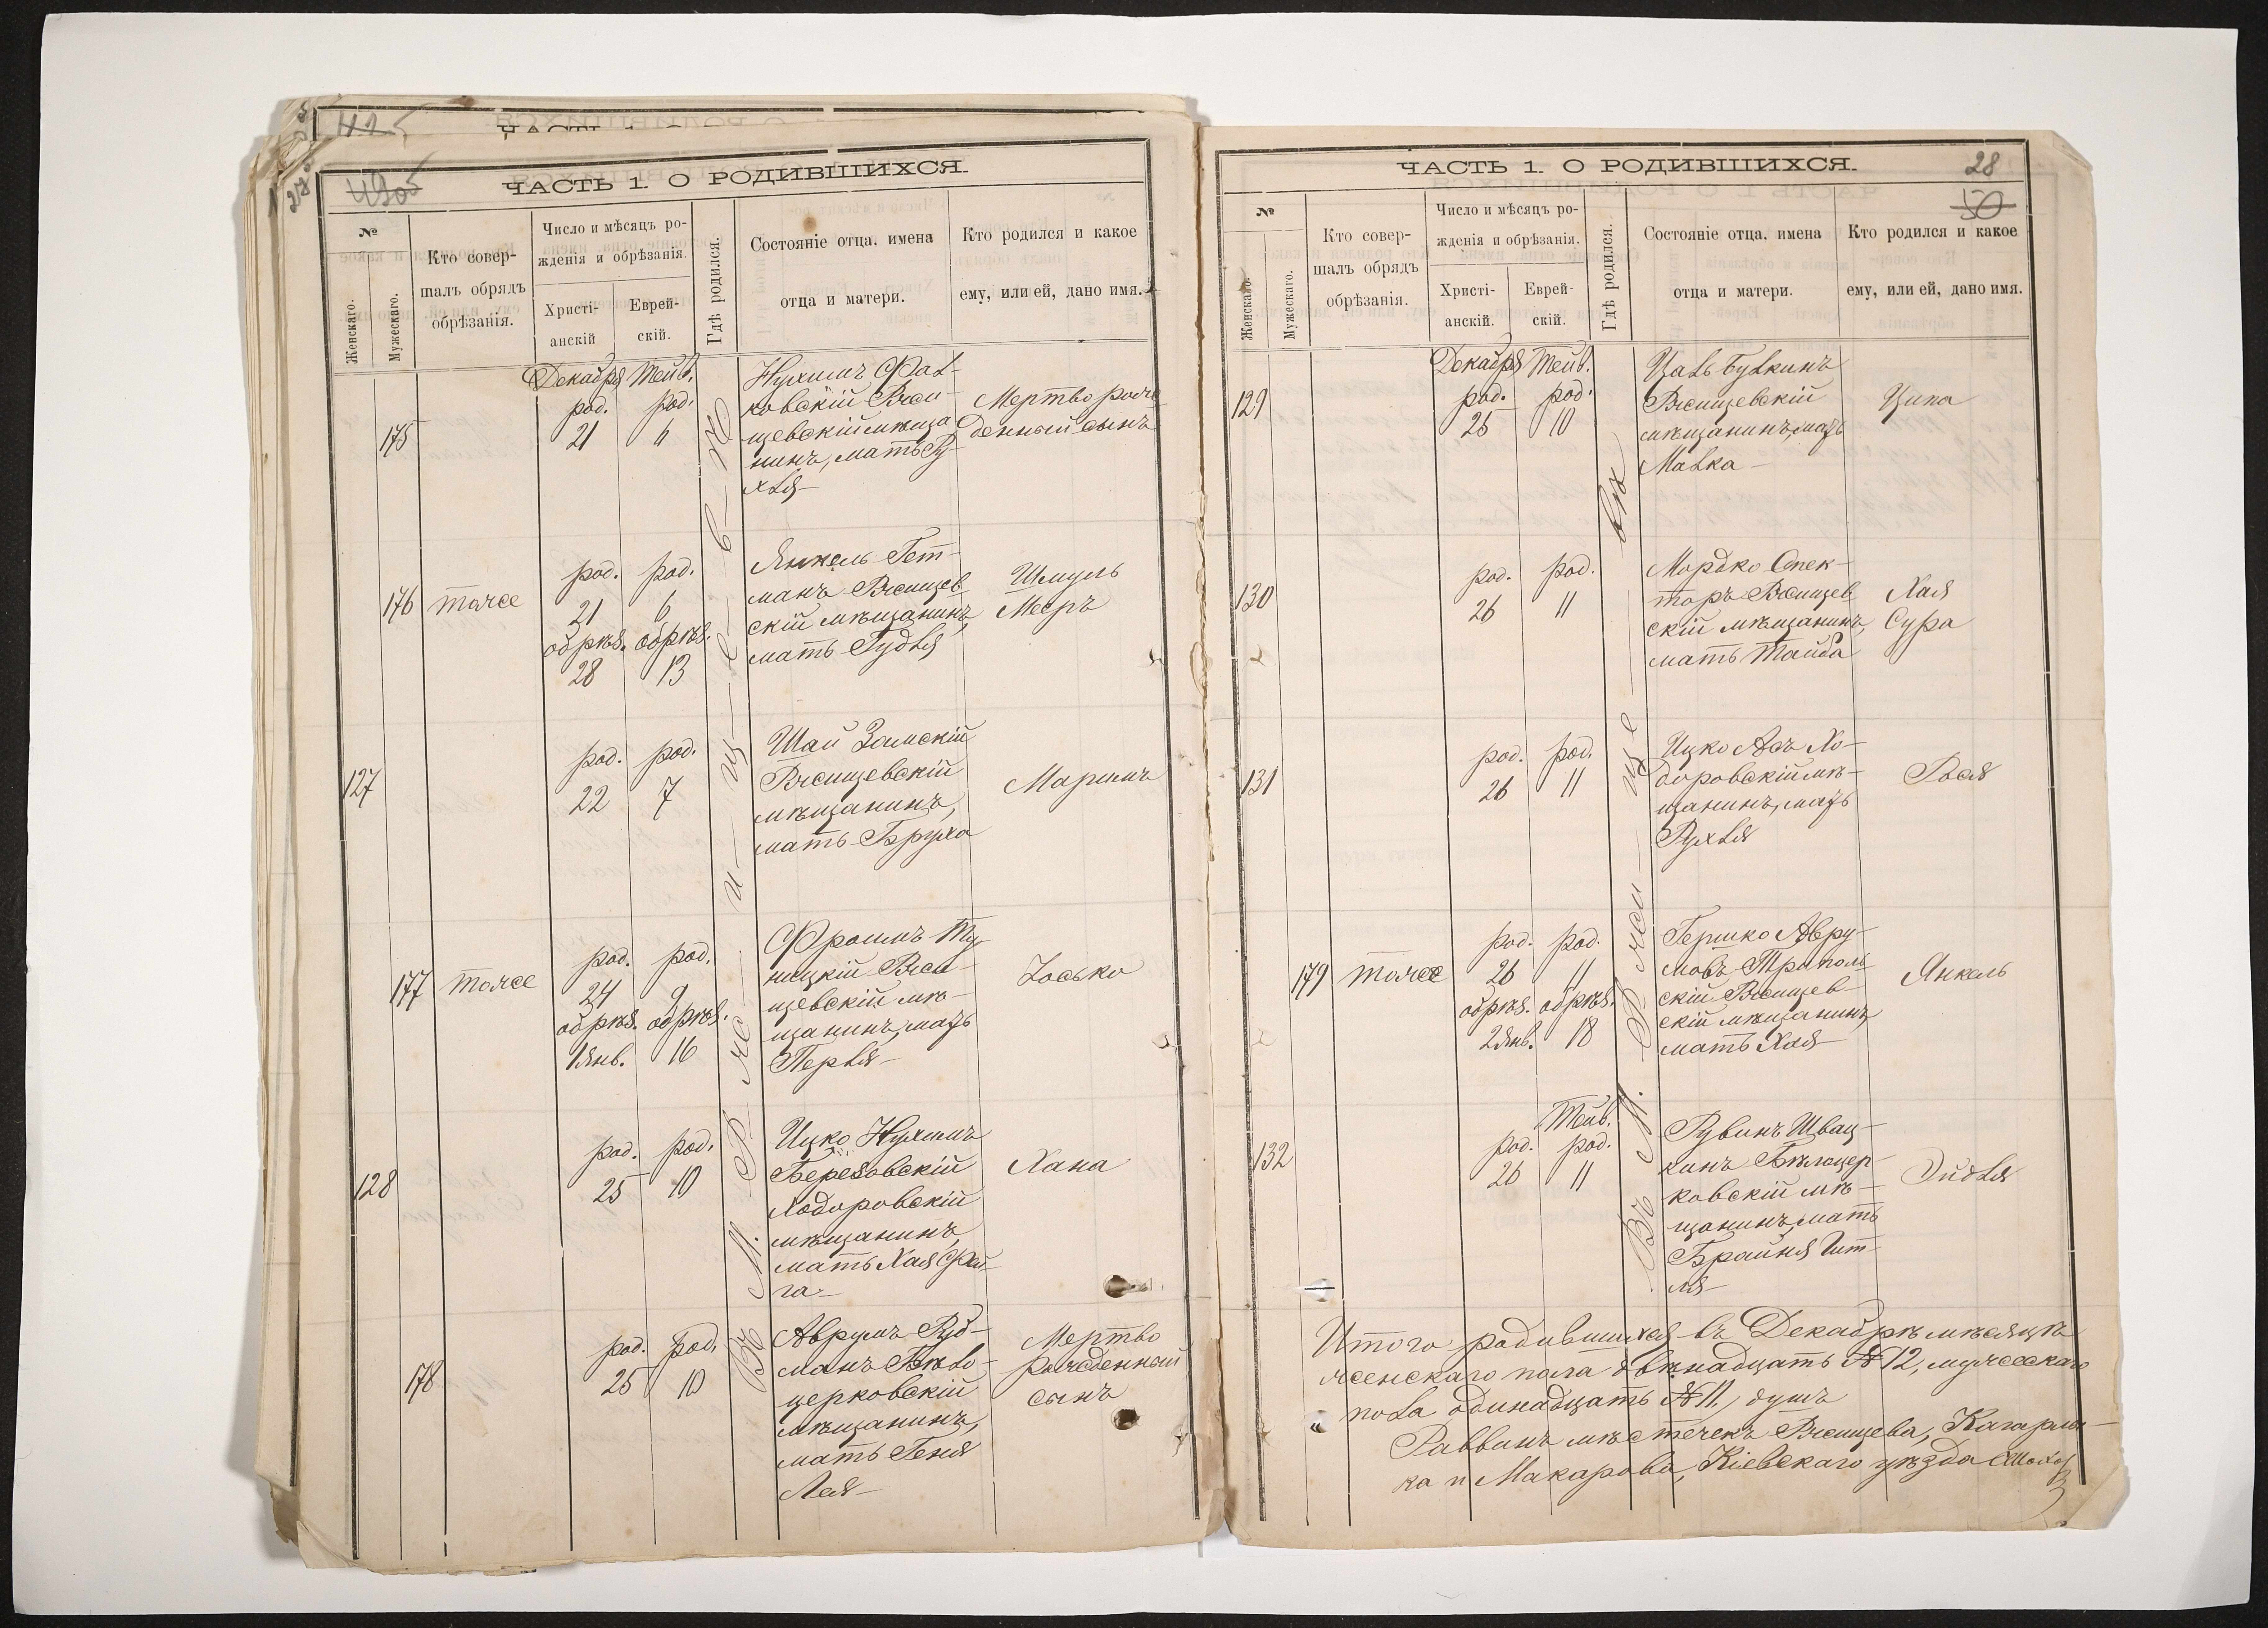 ЧАСТЬ 1. О РОДИВШИХСЯ.
№
Женскаго.
Мужескаго.
Кто совер-
шалъ обрядъ
обрѣзанія.
Число и мѣсяцъ ро-
жденія и обрѣзанія.
Христі-
анскій
Еврей-
скій.
Гдѣ родился.
Состояніе отца, имена
отца и матери.
Кто родился и какое
ему, или ей, дано имя.
Въ М. Ржищевѣ
175
Декабря Тейв.
род. род.
21 6
Нухимъ Фал-
ковскій Ржи-
щевскій мѣща
нинъ, мать Ру-
хля
Мертворож
денный сынъ
176 тоже
род. род.
21 6
обрѣз. обрѣз.
28 13
Янкель Гет-
манъ Ржищев
скій мѣщанинъ,
мать Гудля
Шмуль
Мееръ
127
род. род.
22 7
Шай Замскій
Ржищевскій
мѣщанинъ,
мать Бруха
Маримъ
177 тоже
род. род.
24 9
обрѣз. обрѣз.
1 Янв. 16
Фроимъ Ту
ницкій Ржи-
щевскій мѣ-
щанинъ, мать
Перля
Іосько
128
род. род.
25 10
Ицко Нухимъ
Березовскій
Ходоровскій
мѣщанинъ,
мать Хая Фей-
га
Хана
178
род. род.
25 10
Аврумъ Руд-
манъ Бѣло-
церковскій
мѣщанинъ,
мать Геня
Лея
Мертво
рожденный
сынъ
ЧАСТЬ 1. О РОДИВШИХСЯ.
28
50
№
Женскаго.
Мужескаго.
Кто совер-
шалъ обрядъ
обрѣзанія.
Число и мѣсяцъ ро-
жденія и обрѣзанія.
Христі-
анскій.
Еврей-
скій.
Гдѣ родился.
Состояніе отца, имена
отца и матери.
Кто родился и какое
ему, или ей, дано имя.
Въ М. Ржищевѣ
129
Декабря Тейв.
род. род.
25 10
Цаль Булкинъ
Ржищевскій
мѣщанинъ, мать
Малка
Ципа
130
род. род.
26 11
Мордко Спек-
торъ Ржищев
скій мѣщанинъ,
мать Тайба
Хая
Сура
131
род. род.
26 11
Ицко Асъ Хо-
доровскій мѣ-
щанинъ, мать
Рухля
Рося
179 тоже
род. род.
26 11
обрѣз. обрѣз.
2 Янв. 18
Гершко Авру-
мовъ Триполь
скій Ржищев-
скій мѣщанинъ,
мать Хая
Янкель
132
Тейв.
род. род.
26 11
Рувинъ Швач-
кинъ Бѣлоцер-
ковскій мѣ-
щанинъ, мать
Брайня Гит-
ля
Эйдля
Итого родившихся въ Декабрѣ мѣсяцѣ
женскаго пола двѣнадцать № 12, мужескаго
пола одинадцать № 11, душъ
Раввинъ мѣстечекъ Ржищева, Кагарлы-
ка и Макарова, Кіевскаго уѣзда